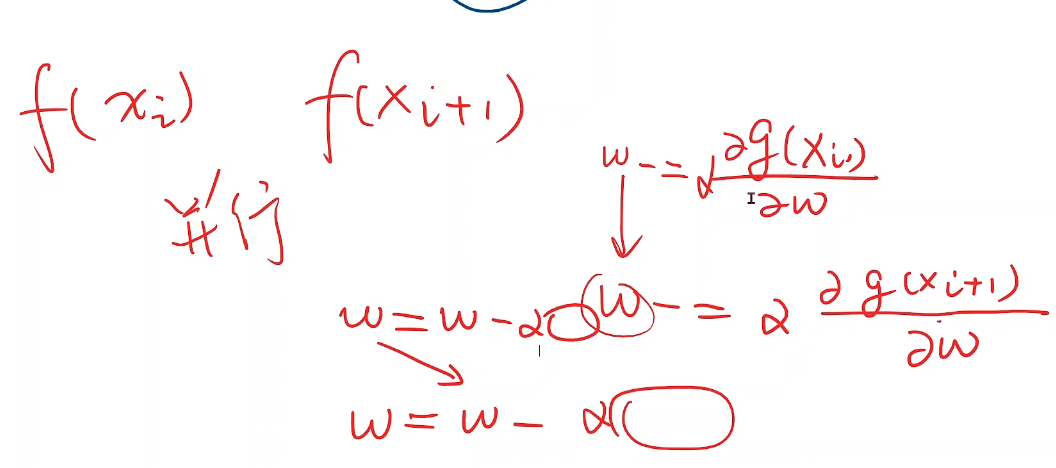 f(xi) f(xi+1)
w -= α ∂g(xi) / ∂w
并行
w = w - α
w -= α ∂g(xi+1) / ∂w
w = w - α( )